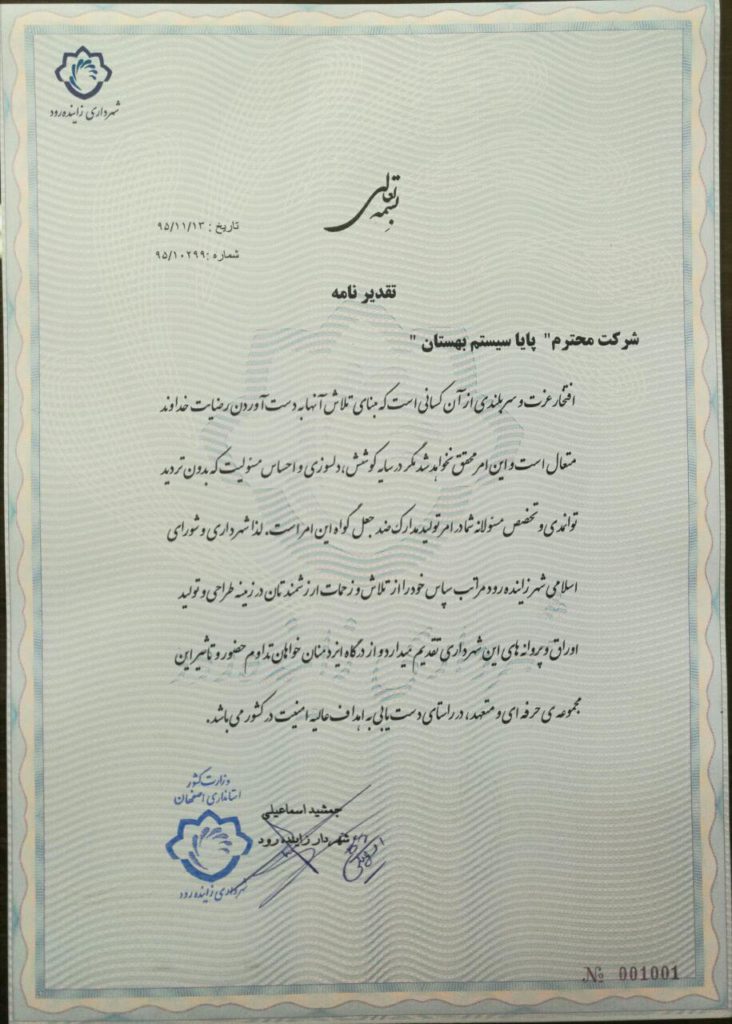 شهرداری زاینده‌رود
بسمه تعالی
تاریخ : ۹۵/۱۱/۱۳
شماره :۹۵/۱۰۲۹۹
تقدیر نامه
شرکت محترم" پایا سیستم بهستان "
افتخار عزت و سربلندی از آن کسانی است که مبنای تلاش آنها به دست آوردن رضایت خداوند
متعال است و این امر محقق نخواهد شد مگر در سایه کوشش، دلسوزی و احساس مسئولیت که بدون تردید
توانمندی و تخصص مسئولانه شما در امر تولید مدارک ضد جعل گواه این امر است. لذا شهرداری و شورای
اسلامی شهر زاینده رود مراتب سپاس خود را از تلاش و زحمات ارزشمندتان در زمینه طراحی و تولید
اوراق و پروانه های این شهرداری تقدیم میدارد و از درگاه ایزد منان خواهان تداوم حضور و تاثیر این
مجموعه ی حرفه ای و متعهد، در راستای دست یابی به اهداف عالیه امنیت در کشور می باشد.
جمشید اسماعیلی
شهردار زاینده رود
وزارت کشور
استانداری اصفهان
شهرداری زاینده رود
№ 001001